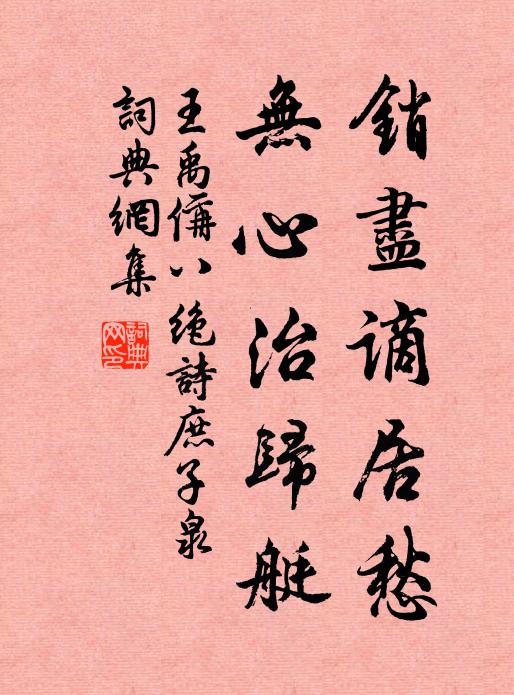 銷盡謫居愁
無心治歸艇
王禹偁八絶詩庶子泉
詞典網集
詞典
网印